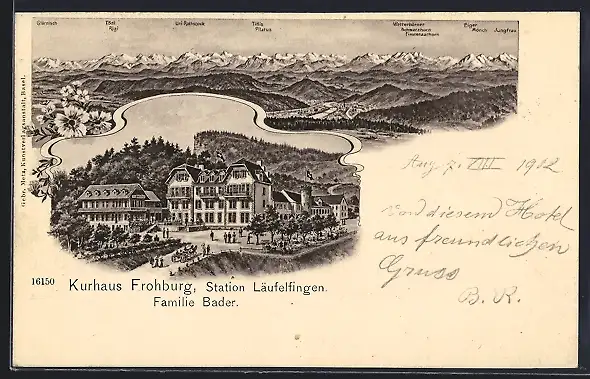 Glärnisch Tödi Uri-Rothstock Titlis Wetterhörner Eiger
Rigi Pilatus Schreckhorn Mönch Jungfrau
Finsteraarhorn
Gebr. Metz, Kunstverlagsanstalt, Basel.
Aug. 7. VIII 1902
Von diesem Hotel
aus freundlichen
Gruss
B. R.
16150 Kurhaus Frohburg, Station Läufelfingen.
Familie Bader.